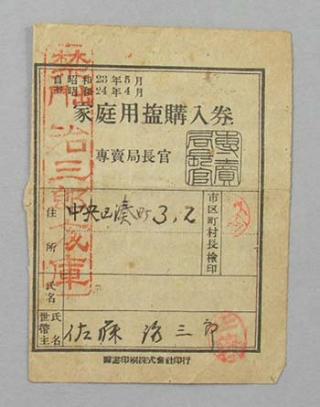 自昭和23年5月
至昭和24年4月
家庭用塩購入券
専賣局長官
専賣局長官
市区町村長検印
住所
中央区湊町3,2
氏名
世帯主
氏名
佐藤治三郎
印刷株式會社印行